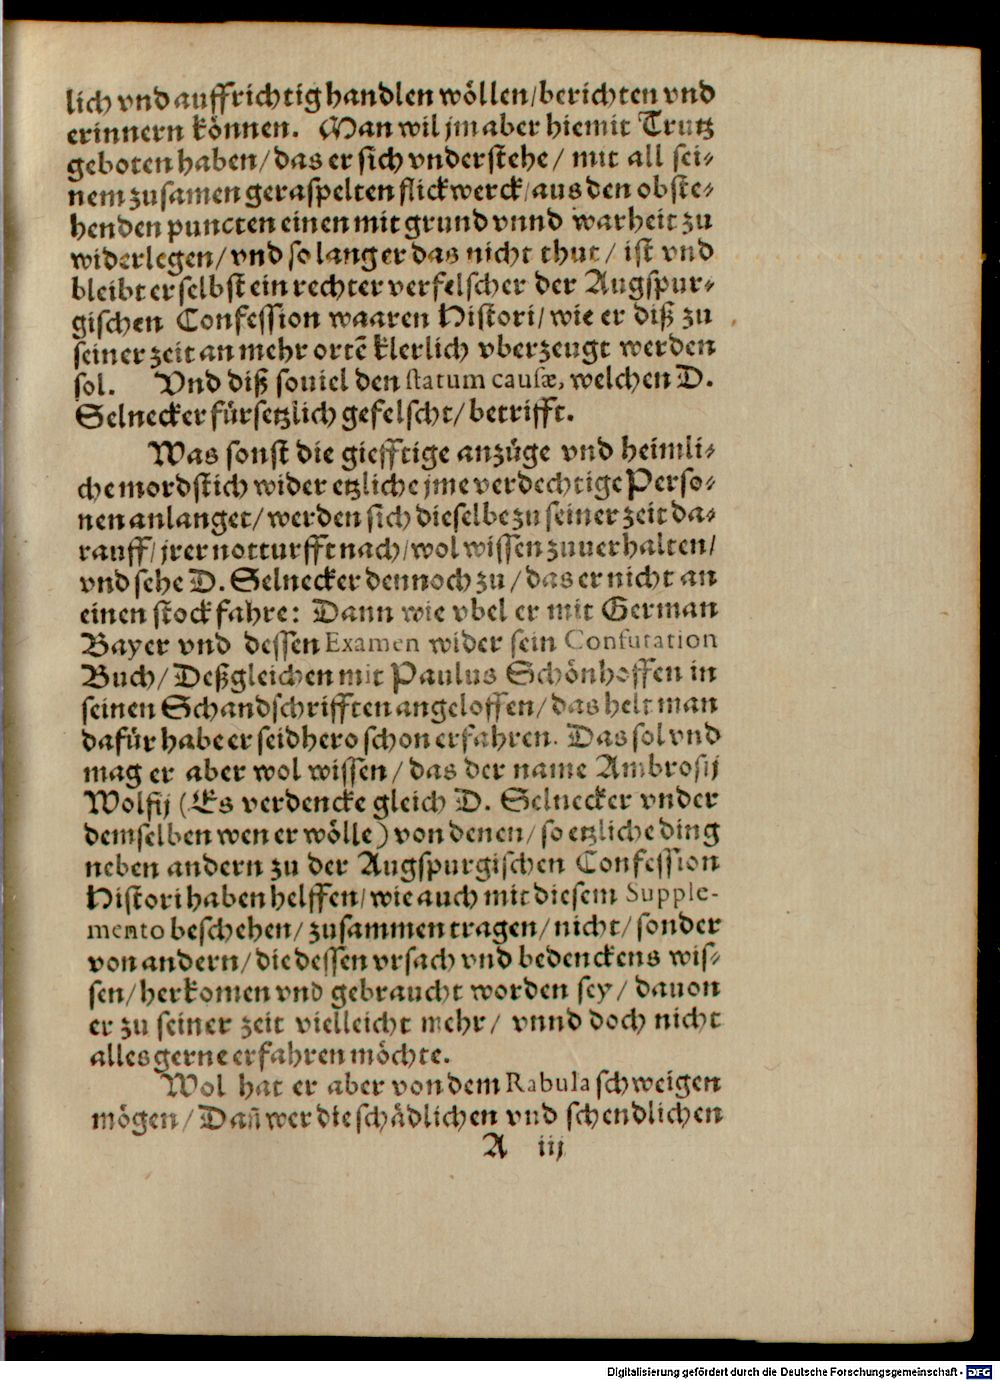 lich vnd auffrichtig handlen wöllen/berichten vnd
erinnern können. Man wil jm aber hiemit Trutz
geboten haben/das er sich vnderstehe/ mit all sei-
nem zusamen geraspelten flickwerck/aus den obste-
henden puncten einen mit grund vnnd warheit zu
widerlegen/vnd so lang er das nicht thut/ ist vnd
bleibt er selbst ein rechter verfelscher der Augspur-
gischen Confession waaren Histori/wie er diß zu
seiner zeit an mehr ortē klerlich vberzeugt werden
sol. Vnd diß souiel den statum causæ, welchen D.
Selnecker fürsetzlich gefelscht/betrifft.
Was sonst die giefftige anzüge vnd heimli-
che mordstich wider etzliche jme verdechtige Perso-
nen anlanget/werden sich dieselbe zu seiner zeit da-
rauff/jrer notturfft nach/wol wissen zuuerhalten/
vnd sehe D. Selnecker dennoch zu/das er nicht an
einen stock fahre: Dann wie vbel er mit German
Bayer vnd dessen Examen wider sein Confutation
Buch/Deßgleichen mit Paulus Schönhoffen in
seinen Schandschrifften angeloffen/das helt man
dafür habe er seidhero schon erfahren. Das sol vnd
mag er aber wol wissen/das der name Ambrosij
Wolfij (Es verdencke gleich D. Selnecker vnder
demselben wen er wölle) von denen/so etzliche ding
neben andern zu der Augspurgischen Confession
Histori haben helffen/wie auch mit diesem Supple-
mento beschehen/zusammen tragen/nicht/sonder
von andern/die dessen vrsach vnd bedenckens wis-
sen/herkomen vnd gebraucht worden sey/dauon
er zu seiner zeit vielleicht mehr/ vnnd doch nicht
alles gerne erfahren möchte.
Wol hat er aber von dem Rabula schweigen
mögen/Dañ wer die schädlichen vnd schendlichen
A iij
Digitalisierung gefördert durch die Deutsche Forschungsgemeinschaft - DFG